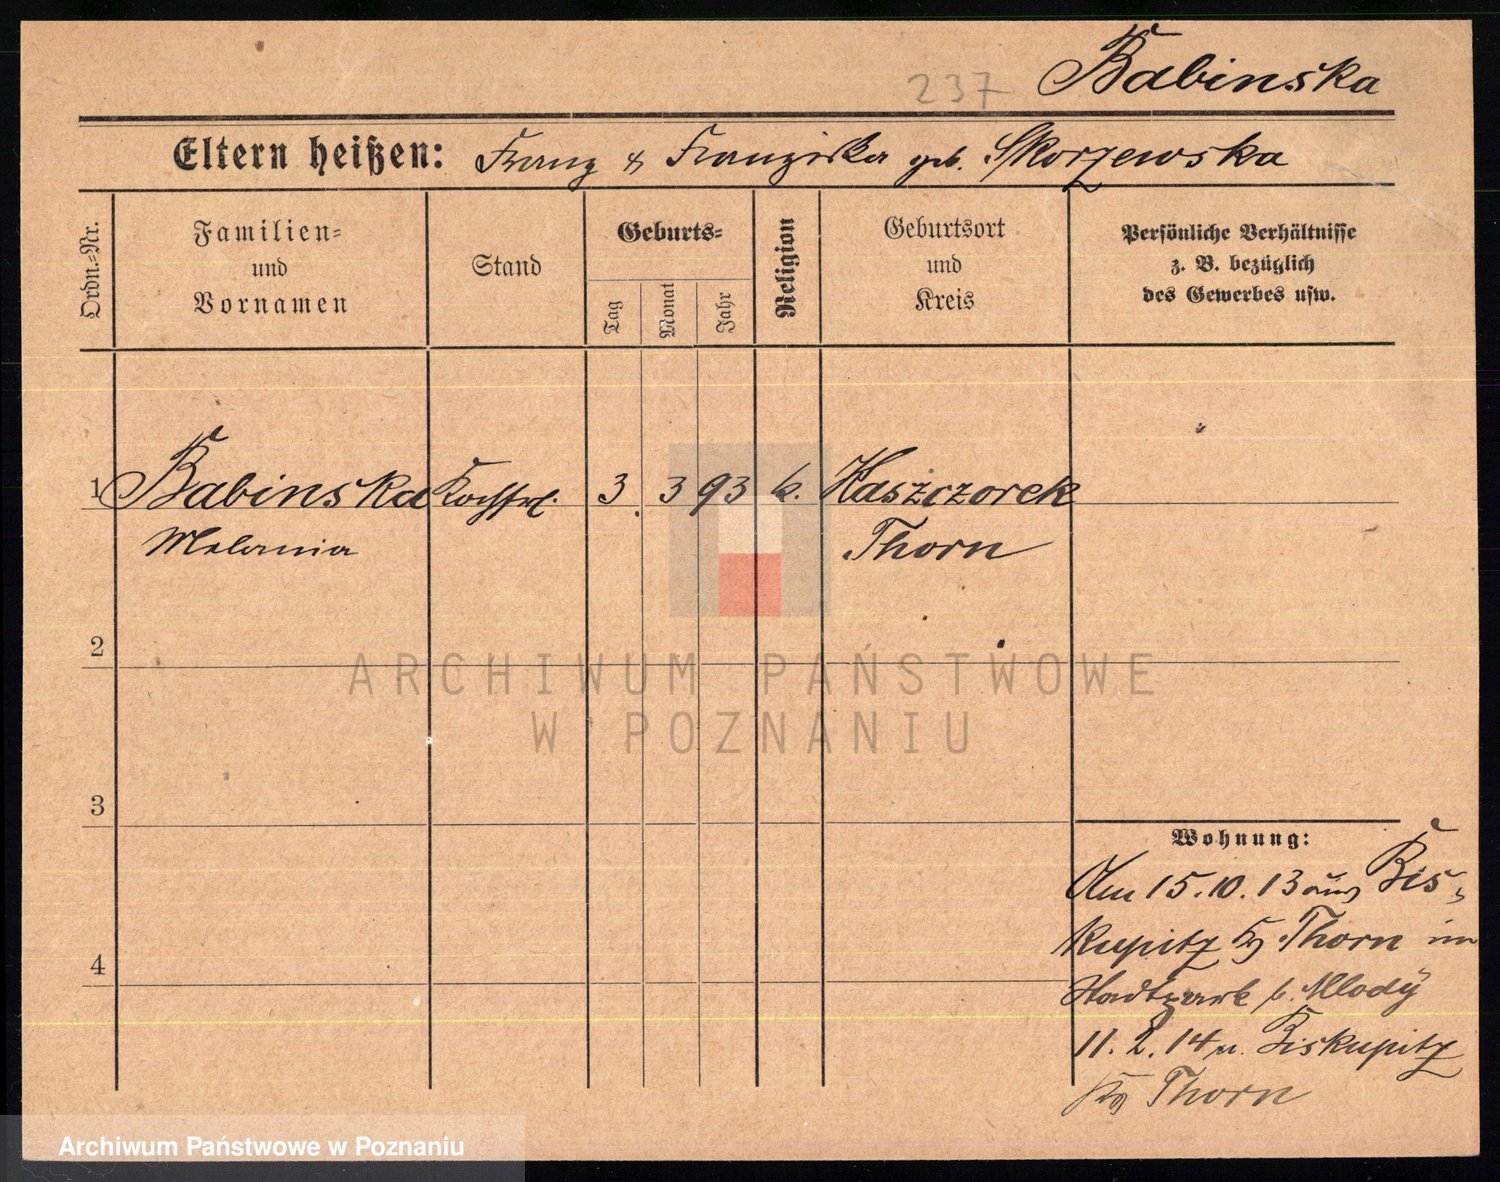 237 Babinska
Eltern heißen: Franz & Franziska geb. Skorzewska
Ordn.-Nr.
Familien-
und
Vornamen
Stand
Geburts-
Tag
Monat
Jahr
Religion
Geburtsort
und
Kreis
Persönliche Verhältnisse
z. B. bezüglich
des Gewerbes usw.
1 Babinska Kochfrl. 3 3 93 k. Kaszczorek
Melania Thorn
2
3
4
Wohnung:
Am 15.10.13 aus Bis-
kupitz Kr Thorn im
Stadtpark b. Mlody
11.2.14 n. Biskupitz
Kr Thorn
ARCHIWUM PAŃSTWOWE
W POZNANIU
Archiwum Państwowe w Poznaniu